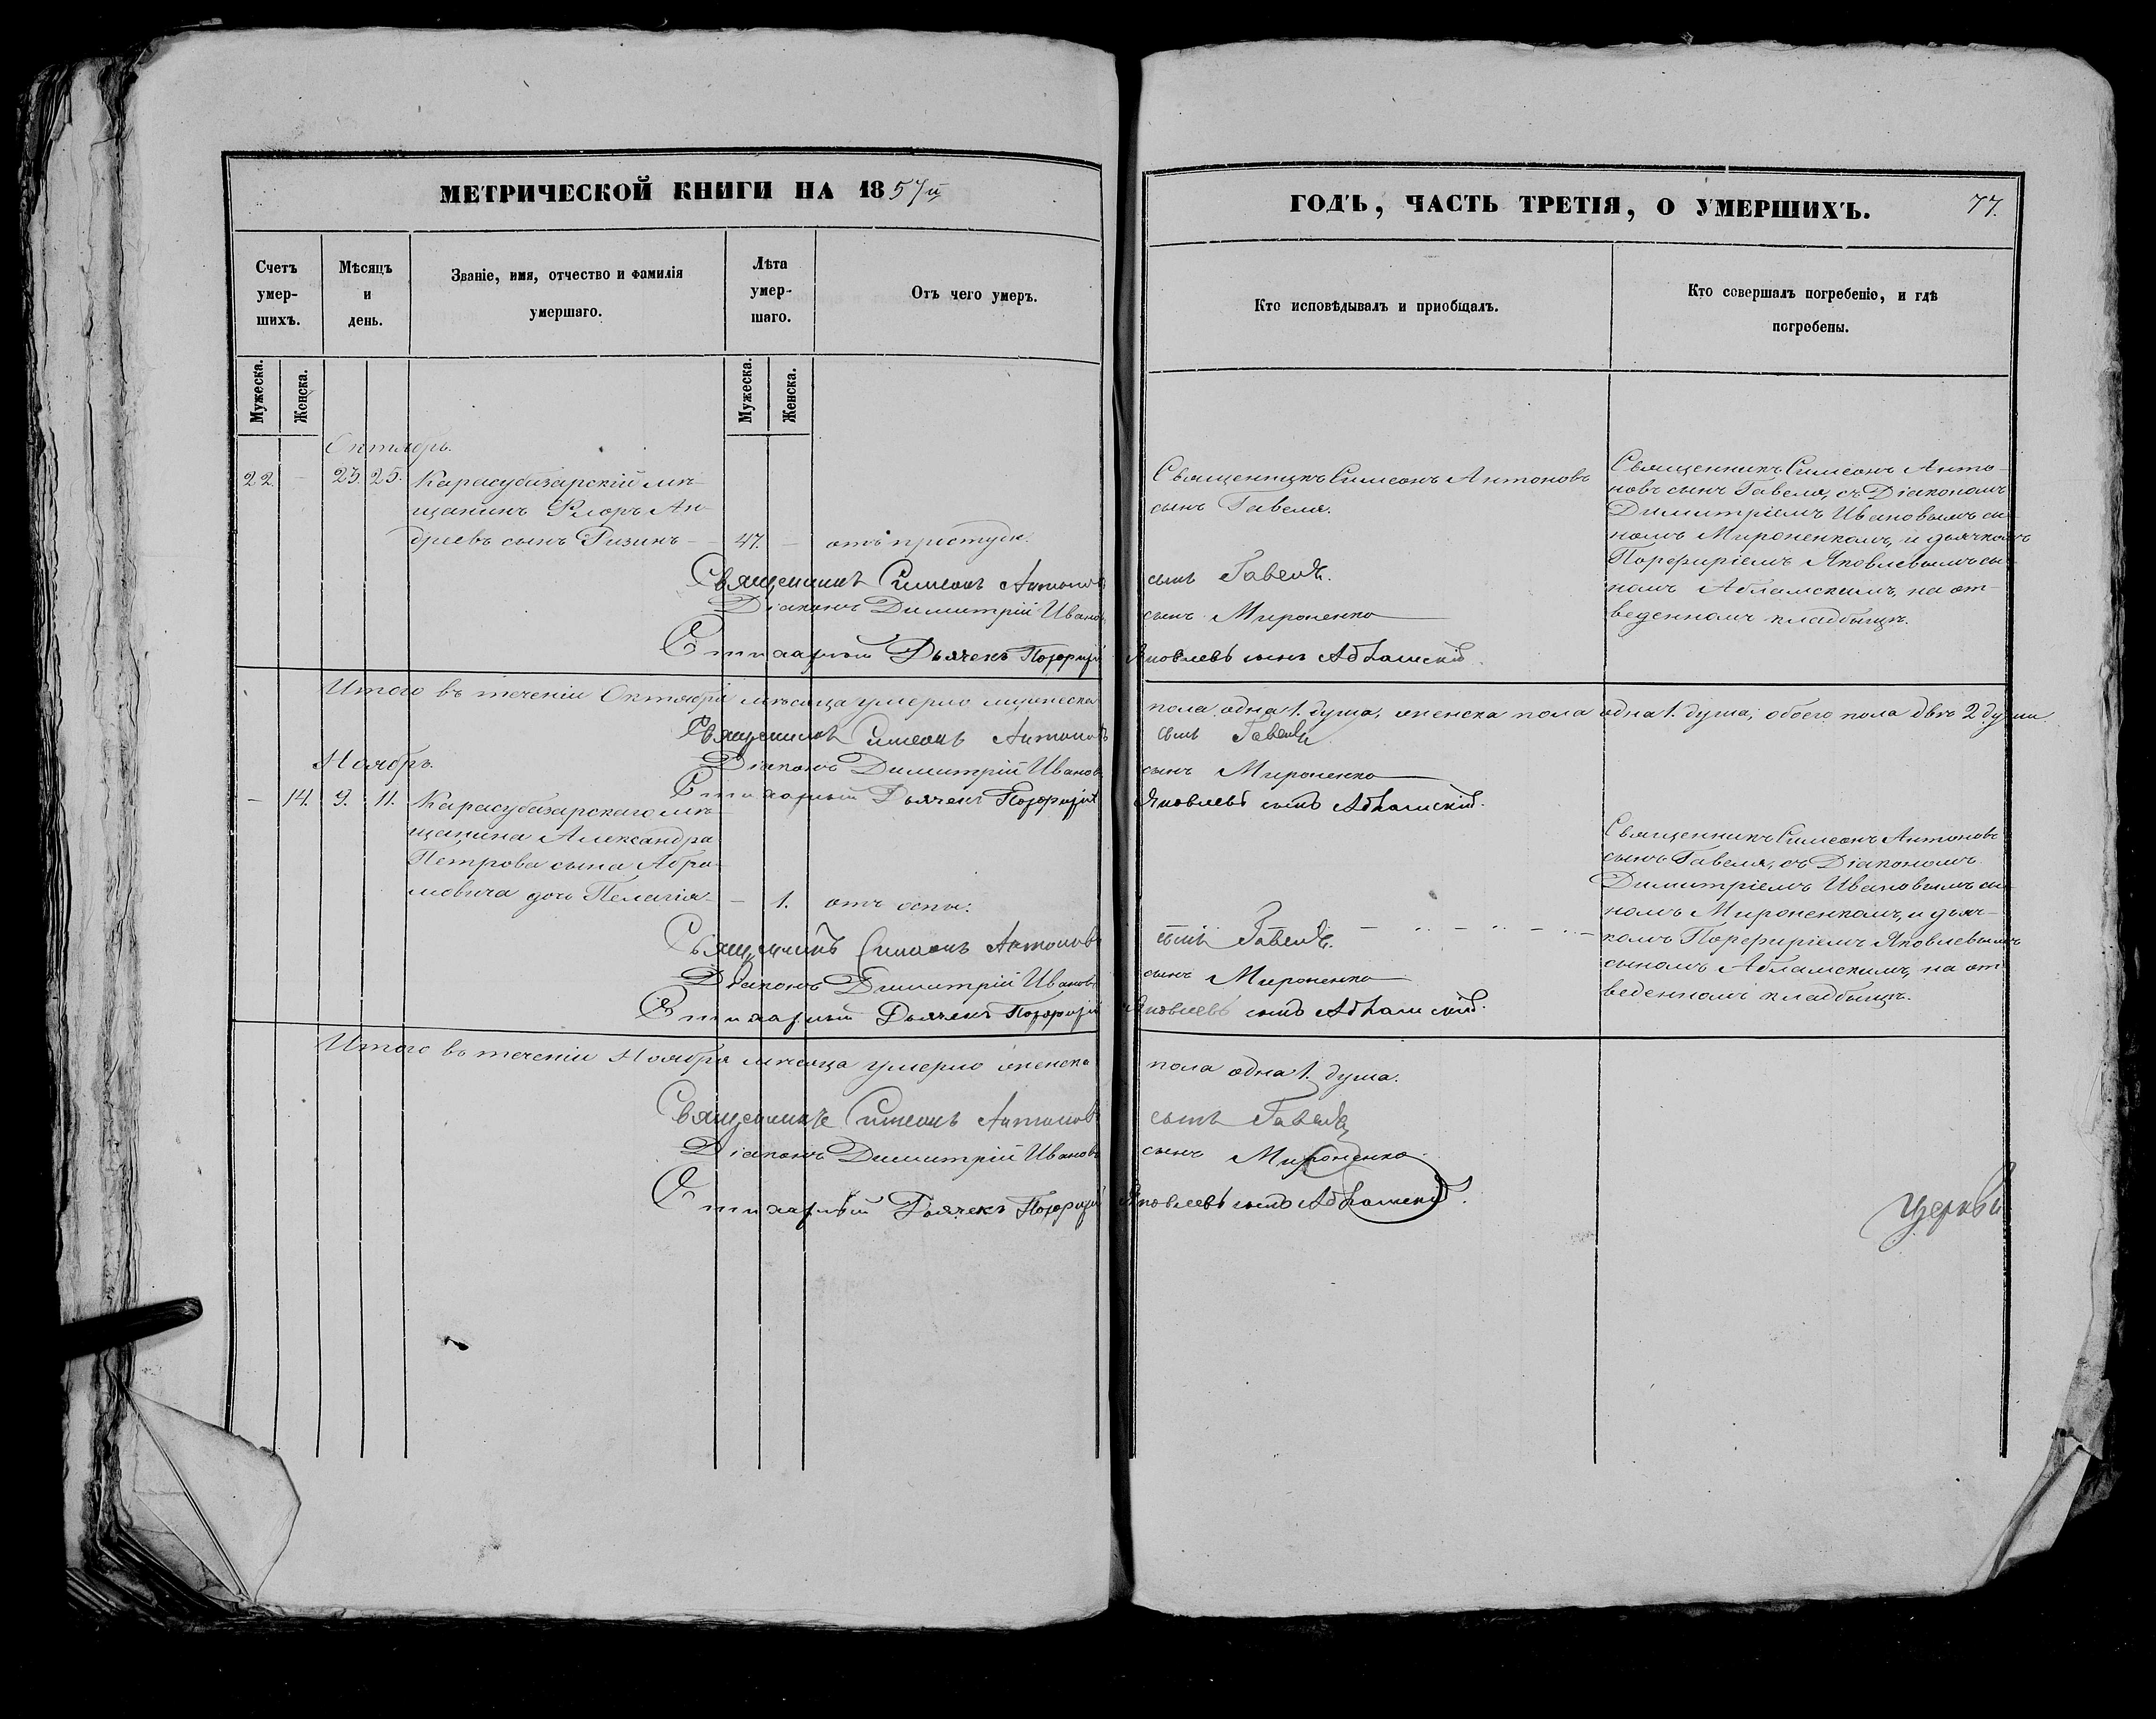 МЕТРИЧЕСКОЙ КНИГИ НА 1857й
ГОДЪ, ЧАСТЬ ТРЕТІЯ, О УМЕРШИХЪ. 77.
Счетъ умер-
шихъ.
Мѣсяцъ
и
день.
Званіе, имя, отчество и фамилія
умершаго.
Лѣта
умер-
шаго.
Отъ чего умеръ.
Кто исповѣдывалъ и приобщалъ.
Кто совершалъ погребеніе, и гдѣ
погребены.
Мужеска. Женска.
Мужеска. Женска.
Октябрь.
22. – 23. 25. Карасубазарскій мѣ-
щанинъ Ѳлоръ Ан-
дреевъ сынъ Ризинъ – 47. – отъ простуды.
Священникъ Симеонъ Антоновъ
сынъ Гавеля.
Священникъ Симеонъ Анто-
новъ сынъ Гавеля, съ Діакономъ
Димитріемъ Ивановымъ сы-
номъ Мироненкомъ, и дьячкомъ
Порфиріемъ Яковлевымъ сы-
номъ Абламскимъ, на от-
веденномъ кладбищѣ.
Священникъ Симеонъ Антоновъ сынъ Гавеля.
Діаконъ Димитрій Ивановъ сынъ Мироненко
Стихарный Дьячекъ Порфирій Яковлевъ сынъ Абламскій.
Итого въ теченіи Октября мѣсяца умерло мужеска пола одна 1. душа, женска пола одна 1. душа, обоего пола двѣ 2 души.
Священникъ Симеонъ Антоновъ сынъ Гавеля
Діаконъ Димитрій Ивановъ сынъ Мироненко
Стихарный Дьячекъ Порфирій Яковлевъ сынъ Абламскій.
Ноябрь.
– 14. 9. 11. Карасубазарскаго мѣ-
щанина Александра
Петрова сына Абра-
мовича дочь Пелагія – – 1. отъ оспы.
Священникъ Симеонъ Антоновъ
сынъ Гавеля, съ Діакономъ
Димитріемъ Ивановымъ сы-
номъ Мироненкомъ, и дьяч-
комъ Порфиріемъ Яковлевымъ
сыномъ Абламскимъ, на от
веденномъ кладбищѣ.
Священникъ Симеонъ Антоновъ сынъ Гавеля.
Діаконъ Димитрій Ивановъ сынъ Мироненко
Стихарный Дьячекъ Порфирій Яковлевъ сынъ Абламскій.
Итого въ теченіи Ноября мѣсяца умерло женска пола одна 1. душа.
Священникъ Симеонъ Антоновъ сынъ Гавеля
Діаконъ Димитрій Ивановъ сынъ Мироненко
Стихарный Дьячекъ Порфирій Яковлевъ сынъ Абламскій.
Церкви